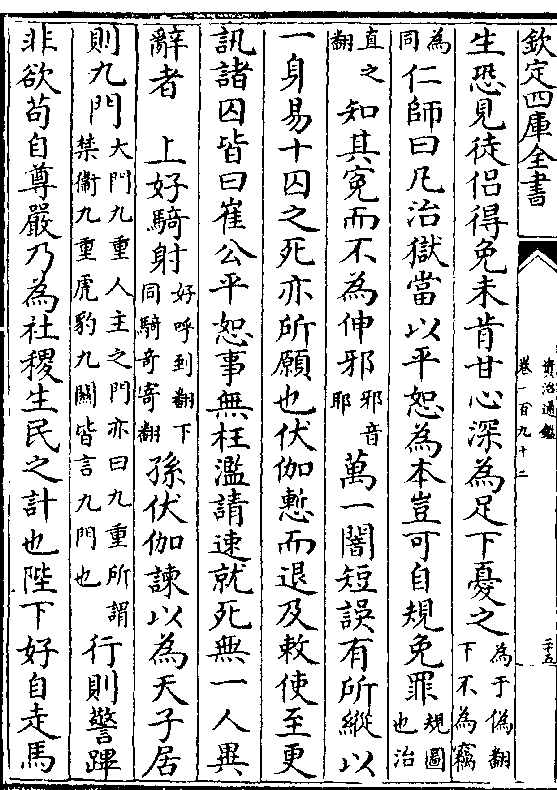 欽定四庫全書
資治通鑑
卷一百九十二
二十五
生恐見徒侣得免未肯甘心深為足下憂之為于偽翻下不為竊
為同直之翻仁師曰凡治獄當以平恕為本豈可自規免罪規圖也治
直之翻知其寃而不為伸邪邪音耶萬一闇短誤有所縱以
一身易十囚之死亦所願也伏伽慙而退及敕使至更
訊諸囚皆曰崔公平恕事無枉濫請速就死無一人異
辭者　上好騎射好呼到翻下同騎奇寄翻孫伏伽諫以為天子居
則九門大門九重人主之門亦曰九重所謂禁衞九重虎豹九關皆言九門也行則警蹕
非欲苟自尊嚴乃為社稷生民之計也陛下好自走馬